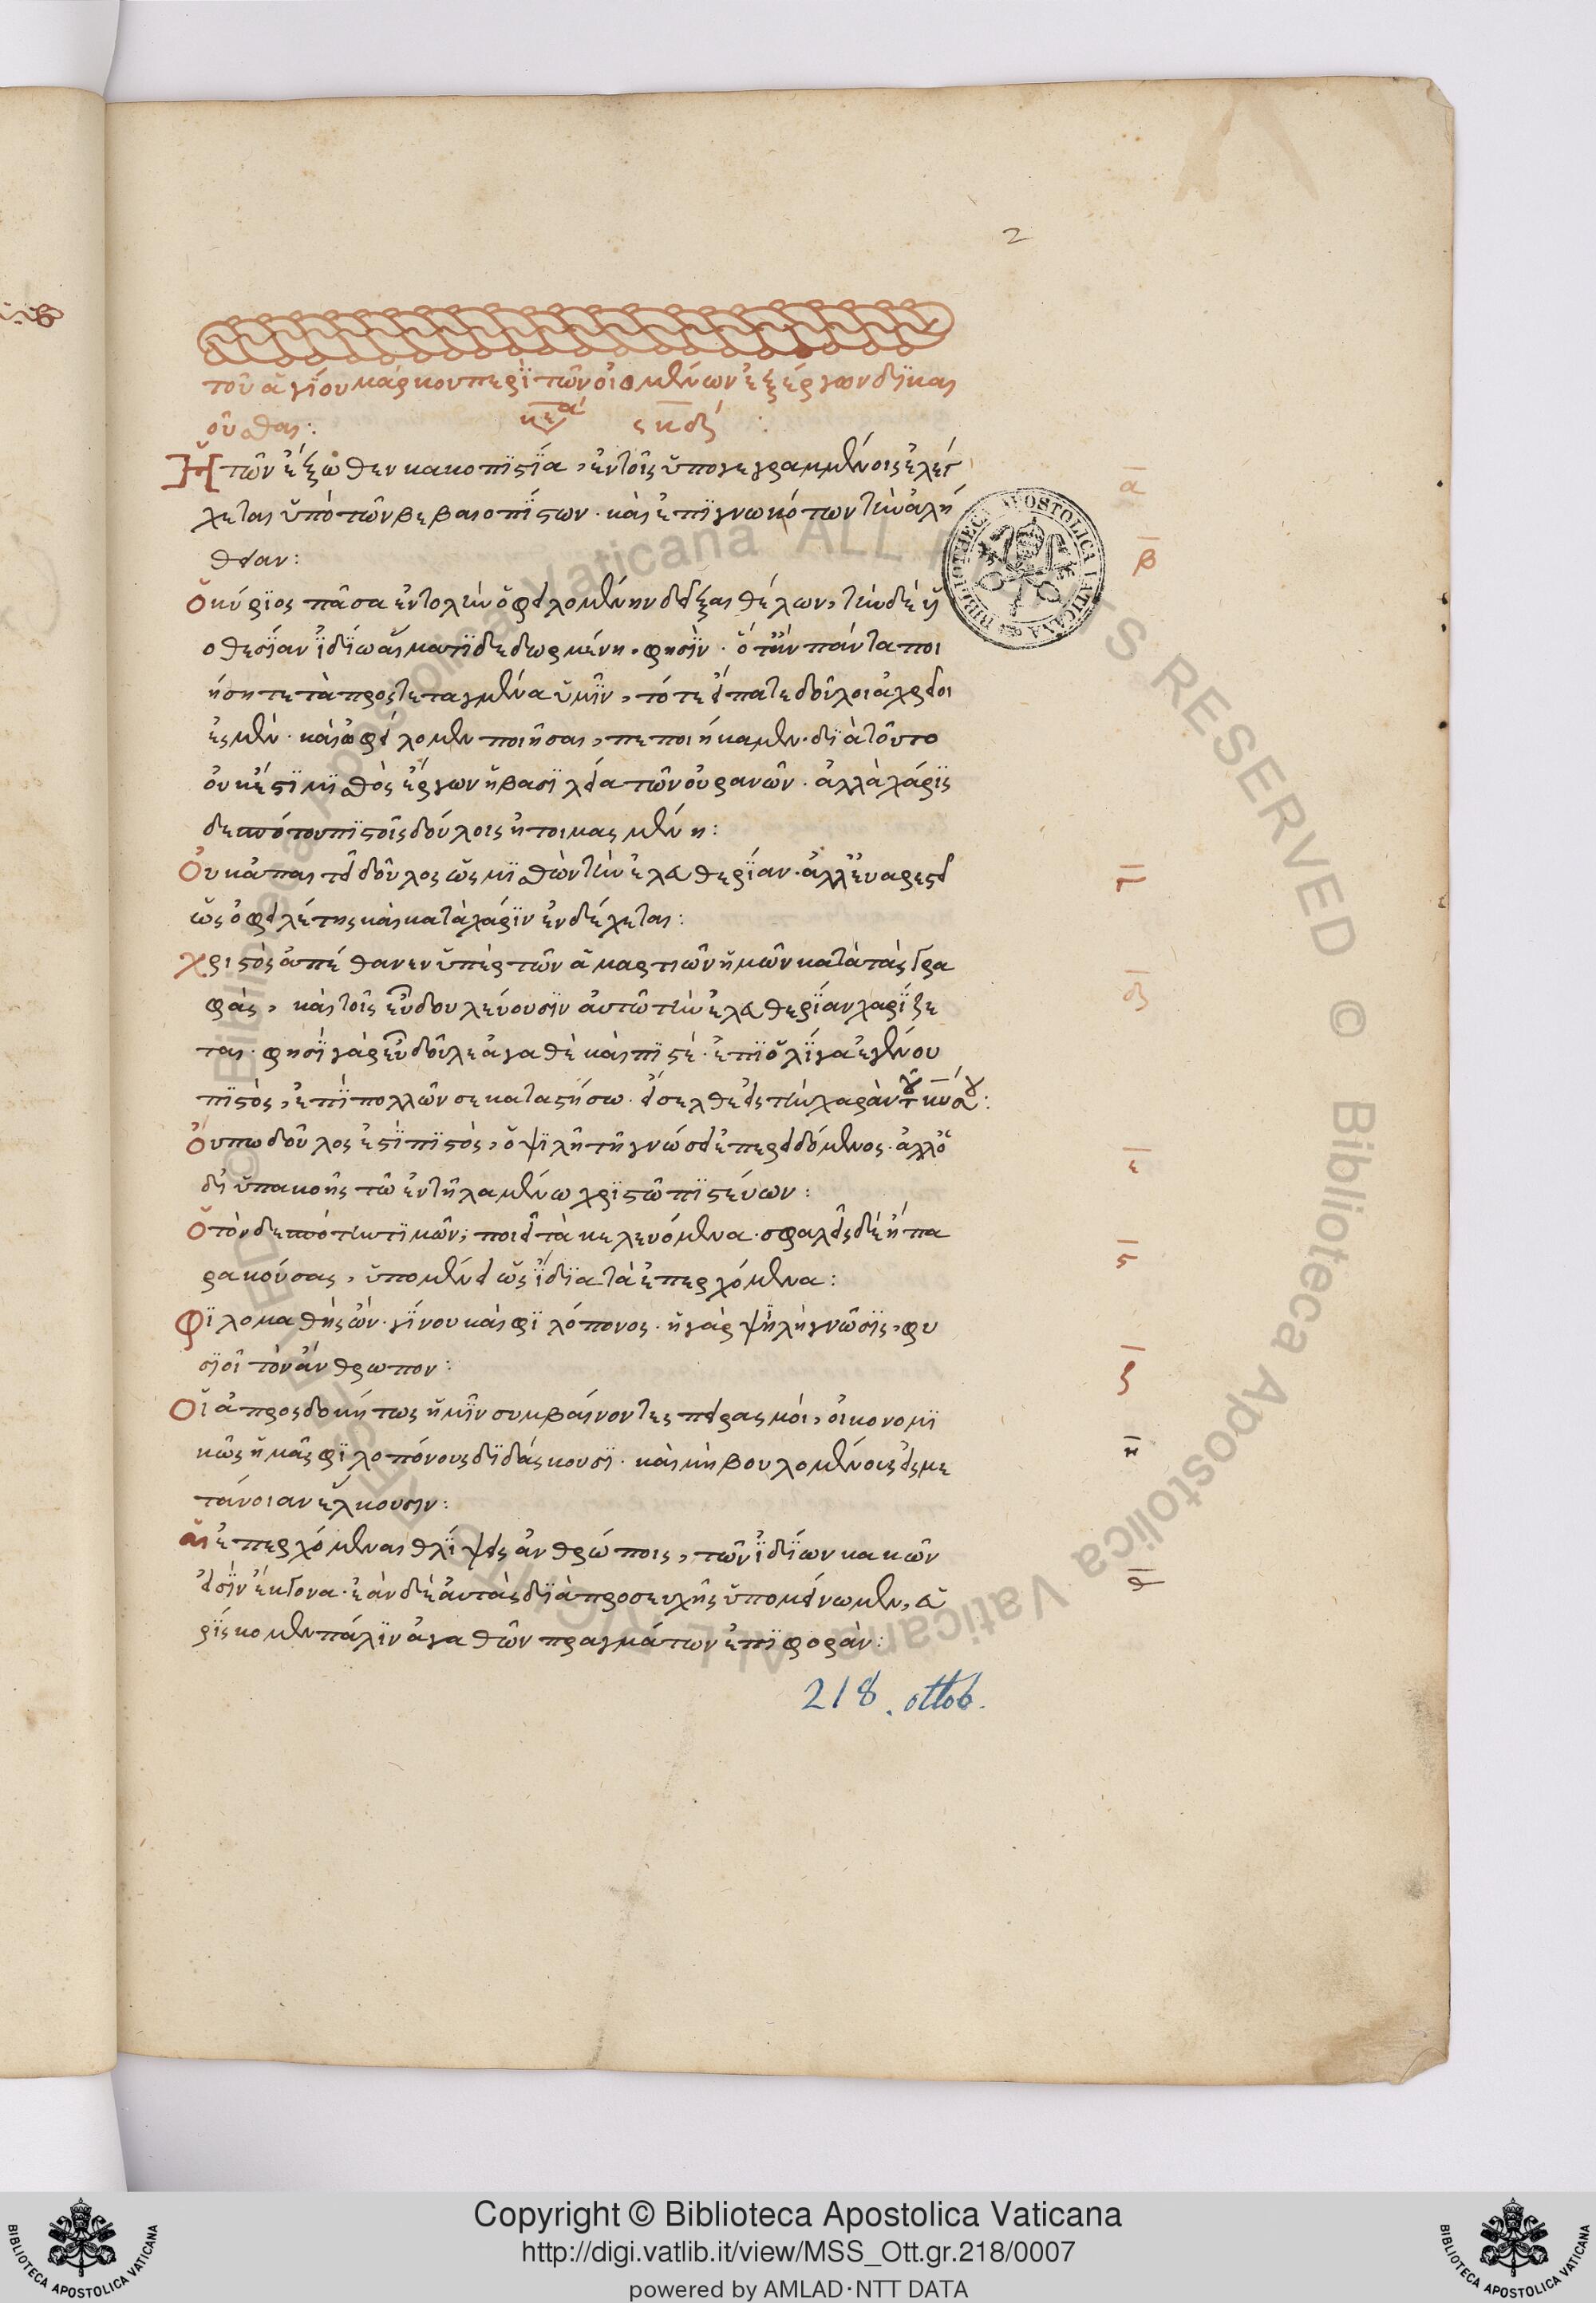 2
τοῦ ἁγίου μάρκου περὶ τῶν οἰομένων ἐξ ἔργων δικαι
οῦσθαι:
κεφά σκδ:
Ἡ τῶν ἔξωθεν κακοπιστία, ἐν τοῖς ὑπογεγραμμένοις ἐλέγ
α
χεται ὑπὸ τῶν βεβαιοπίστων· καὶ ἐπιγνωκότων τὴν ἀλή
β
θειαν:
Ὁ κύριος πᾶσαν ἐντολὴν ὀφειλομένην δεῖξαι θέλων, τὴν δὲ υἱ
οθεσίαν ἰδίω αἵματι δεδωρμένη, φησίν· ὅταν πάντα ποι
ήσητε τὰ προστεταγμένα ὑμῖν, τότε εἴπατε δοῦλοι ἀχρεῖοι
ἐσμέν· καὶ ὃ ὠφείλομεν ποιῆσαι, πεποιήκαμεν· διὰ τοῦτο
οὐκ ἔστι μισθὸς ἔργων ἡ βασιλεία τῶν οὐρανῶν· ἀλλὰ χάρις
δεσπότου πιστοῖς δούλοις ἡτοιμασμένη:
Οὐκ ἀπαιτεῖ δοῦλος ὡς μισθὸν τὴν ἐλευθερίαν· ἀλλ' εὐαρεστεῖ
γ
ὡς ὀφειλέτης καὶ κατὰ χάριν ἐνδέχεται:
Χριστὸς ἀπέθανεν ὑπὲρ τῶν ἁμαρτιῶν ἡμῶν κατὰ τὰς γρα
δ
φάς, καὶ τοῖς εὖ δουλεύουσιν αὐτῶ τὴν ἐλευθερίαν χαρίζε
ται· φησὶ γὰρ εὖ δοῦλε ἀγαθὲ καὶ πιστέ· ἐπὶ ὀλίγα ἐγένου
πιστός, ἐπὶ πολλῶν σε καταστήσω· εἴσελθε εἰς τὴν χαρὰν τοῦ κυ σου:
Οὔπω δοῦλος ἐστὶ πιστὸς, ὁ ψιλῆ τῆ γνώσει ἐπερειδόμενος· ἀλλ' ὁ
ε
δι' ὑπακοῆς τῶ ἐντειλαμένω χριστῶ πιστεύων:
Ὁ τὸν δεσπότην τιμῶν, ποιεῖ τὰ κελευόμενα· σφαλεὶς δὲ ἢ πα
ς
ρακούσας, ὑπομένει ὡς ἴδια τὰ ἐπερχόμενα:
Φιλομαθὴς ὢν· γίνου καὶ φιλόπονος· ἡ γὰρ ψιλὴ γνῶσις, φυ
ζ
σιοῖ τὸν ἄνθρωπον:
Οἱ ἀπροσδοκήτως ἡμῖν συμβαίνοντες πειρασμοὶ, οἰκονομι
κῶς ἡμᾶς φιλοπόνους διδάσκουσι· καὶ μὴ βουλομένοις εἰς με
η
τάνοιαν ἕλκουσιν:
Αἱ ἐπερχόμεναι θλίψεις ἀνθρώποις, τῶν ἰδίων κακῶν
εἰσὶν ἔκγονα· ἐὰν δὲ αὐτὰς διὰ προσευχῆς ὑπομείνωμεν, εὑ
θ
ρίσκομεν πάλιν ἀγαθῶν πραγμάτων ἐπιφοράν:
218. ottob.
BIBLIOTHECA APOSTOLICA VATICANA
© Biblioteca Apostolica Vaticana ALL RIGHTS RESERVED
Copyright © Biblioteca Apostolica Vaticana
http://digi.vatlib.it/view/MSS_Ott.gr.218/0007
powered by AMLAD·NTT DATA
BIBLIOTECA APOSTOLICA VATICANA
BIBLIOTECA APOSTOLICA VATICANA